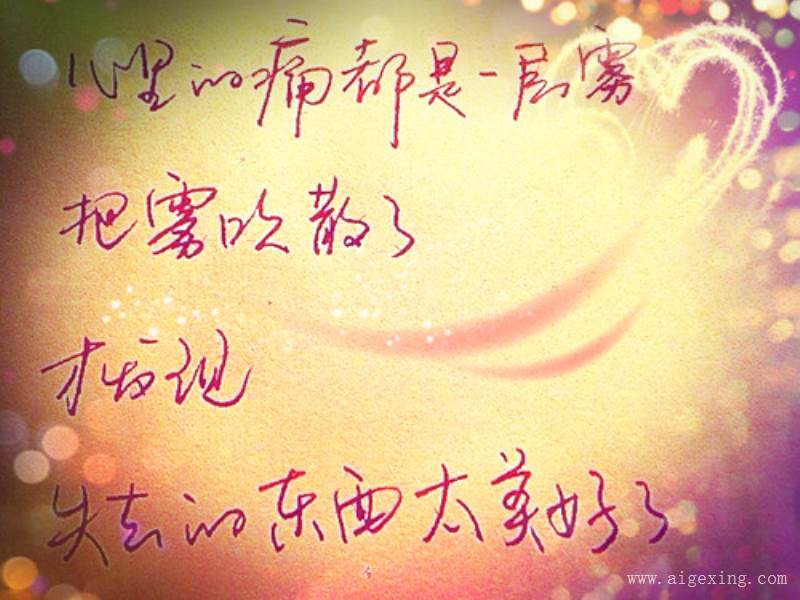 心里的痛都是一层雾
把雾吹散了
才发现
失去的东西太美好了
www.aigexing.com